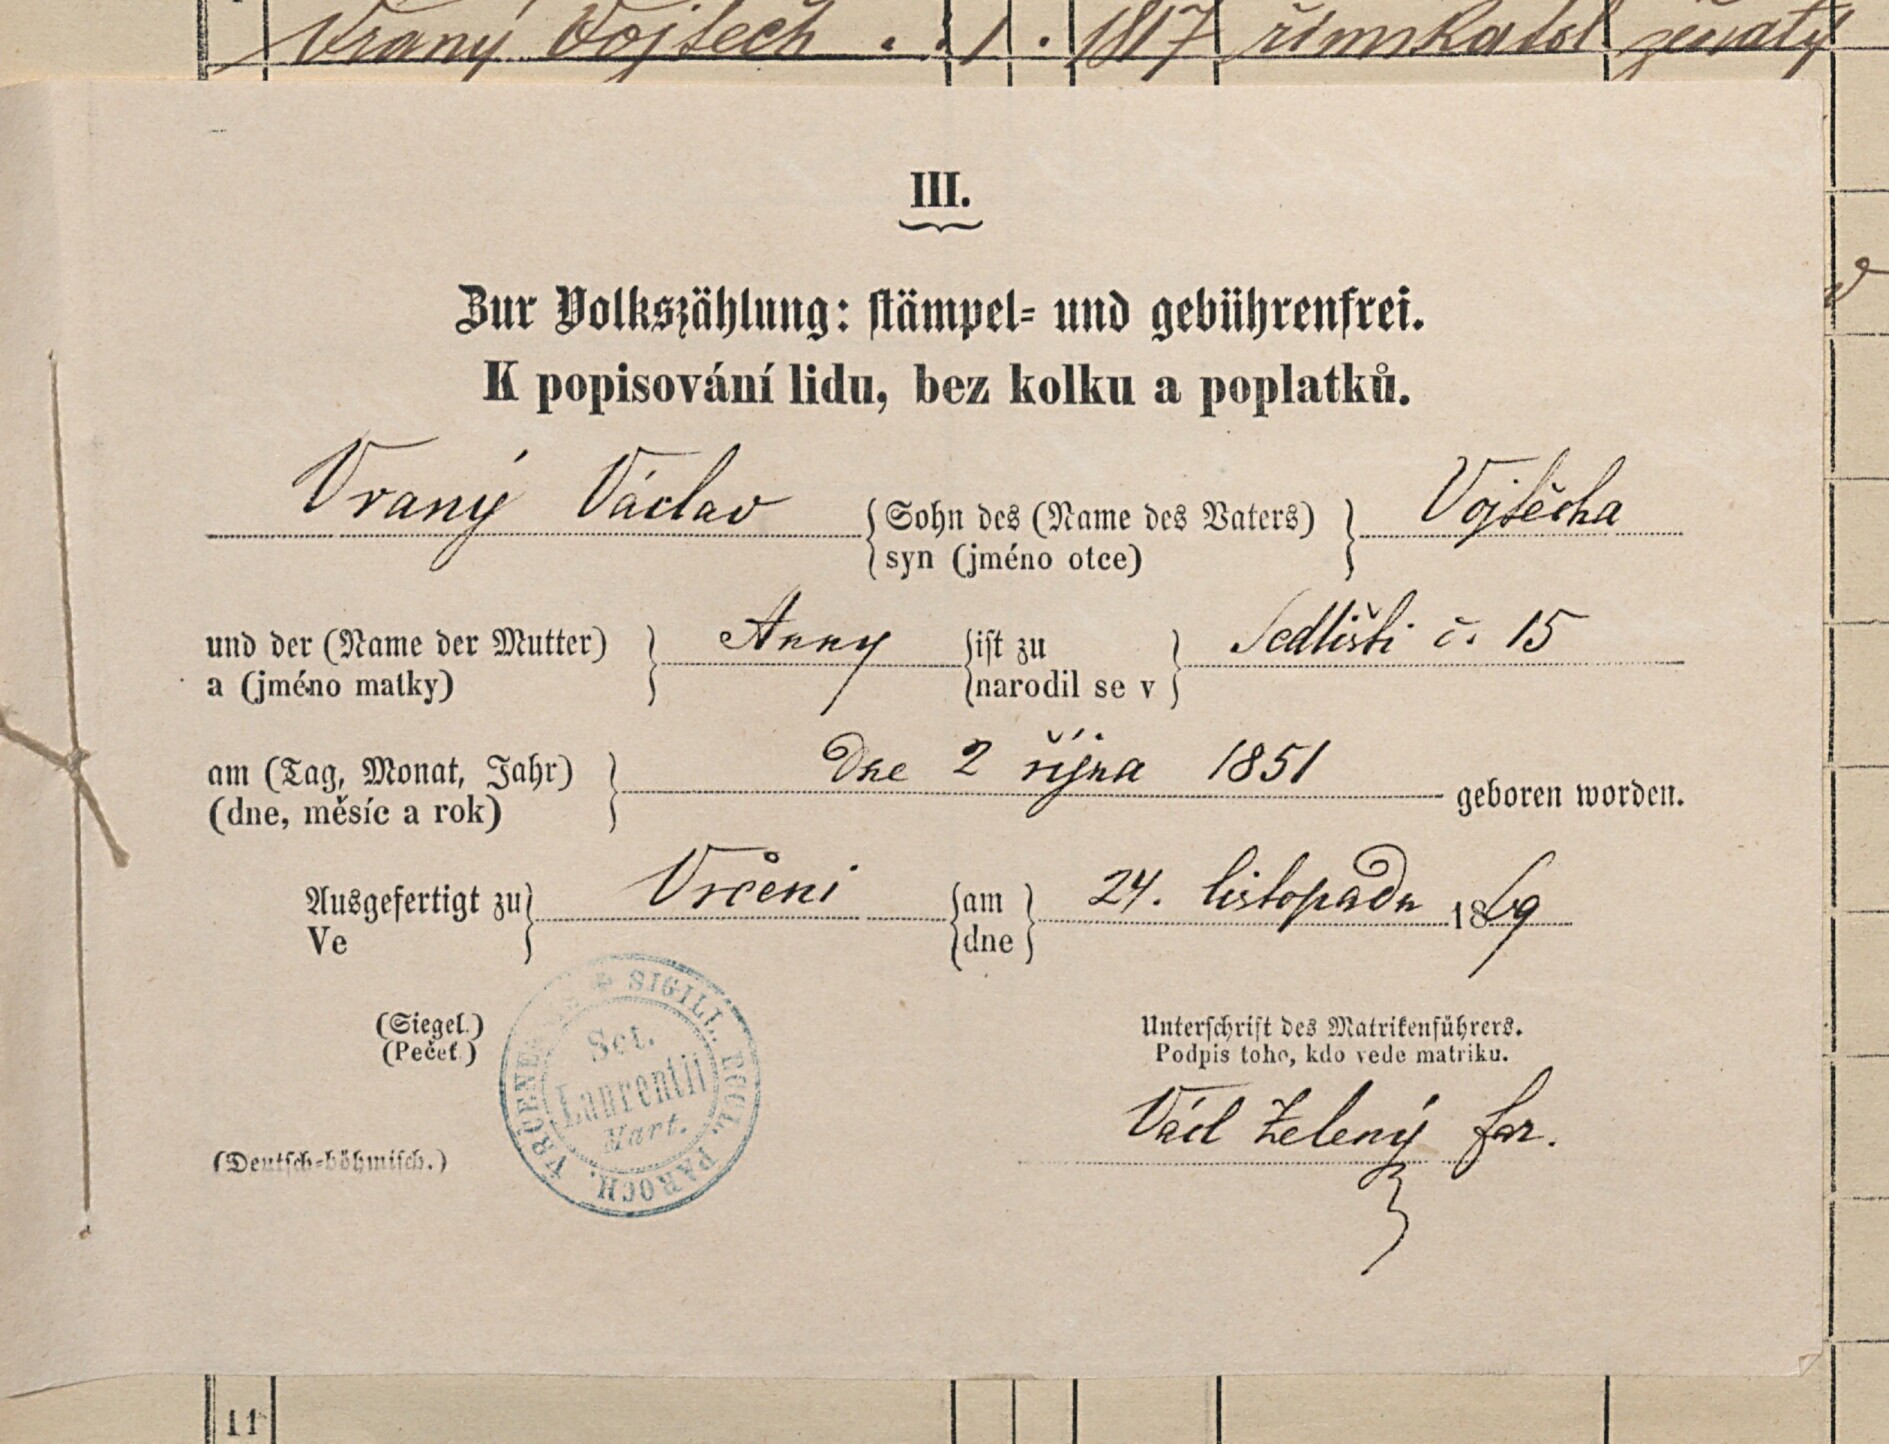 Vraný Vojtěch . . 1 . 1817 římskatol. ženatý
III.
Zur Volkszählung: stämpel- und gebührenfrei.
K popisování lidu, bez kolku a poplatků.
Vraný Václav { Sohn des (Name des Vaters) } Vojtěcha
syn (jméno otce)
und der (Name der Mutter) } Anny { ist zu } Sedlišti č. 15
a (jméno matky) narodil se v
am (Tag, Monat, Jahr) } Dne 2 října 1851 geboren worden.
(dne, měsíc a rok)
Ausgefertigt zu } Vrčeni { am } 24. listopadu 1869
Ve dne
(Siegel.)
(Pečeť)
SIGILL. ECCL. PAROCH. VRČENENSIS
Sct.
Laurentii
Mart.
Unterschrift des Matrikenführers.
Podpis toho, kdo vede matriku.
Václ Zelený far.
(Deutsch-böhmisch.)
11